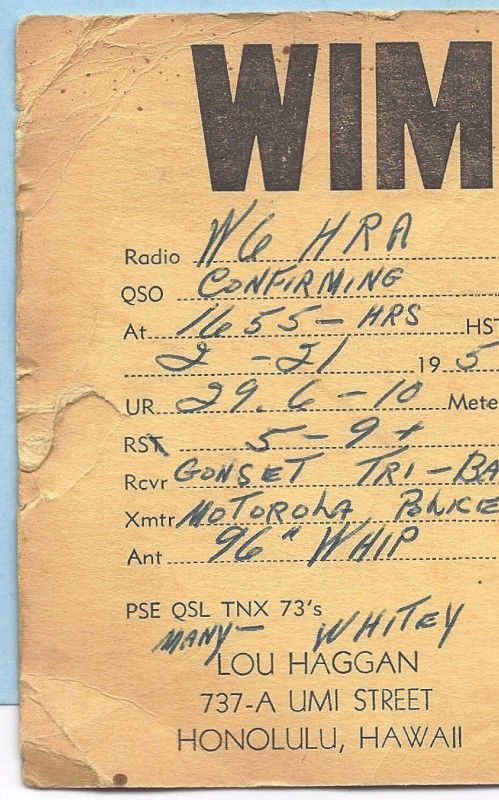 WIM
Radio W6 HRA
QSO CONFIRMING
At 1655-HRS HST
2-21 195
UR 29.6-10 Mete
RST 5-9+
Rcvr GONSET TRI-BA
Xmtr MOTOROLA POLICE
Ant 96" WHIP
PSE QSL TNX 73's
MANY- WHITEY
LOU HAGGAN
737-A UMI STREET
HONOLULU, HAWAII